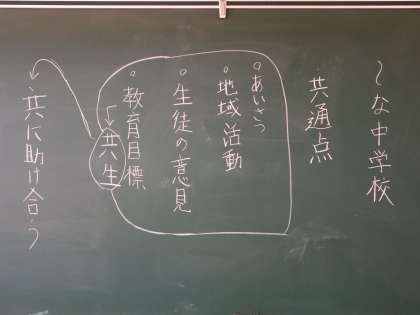 ～な中学校
共通点
。あいさつ
。地域活動
。生徒の意見
。教育目標
共生
共に助け合う